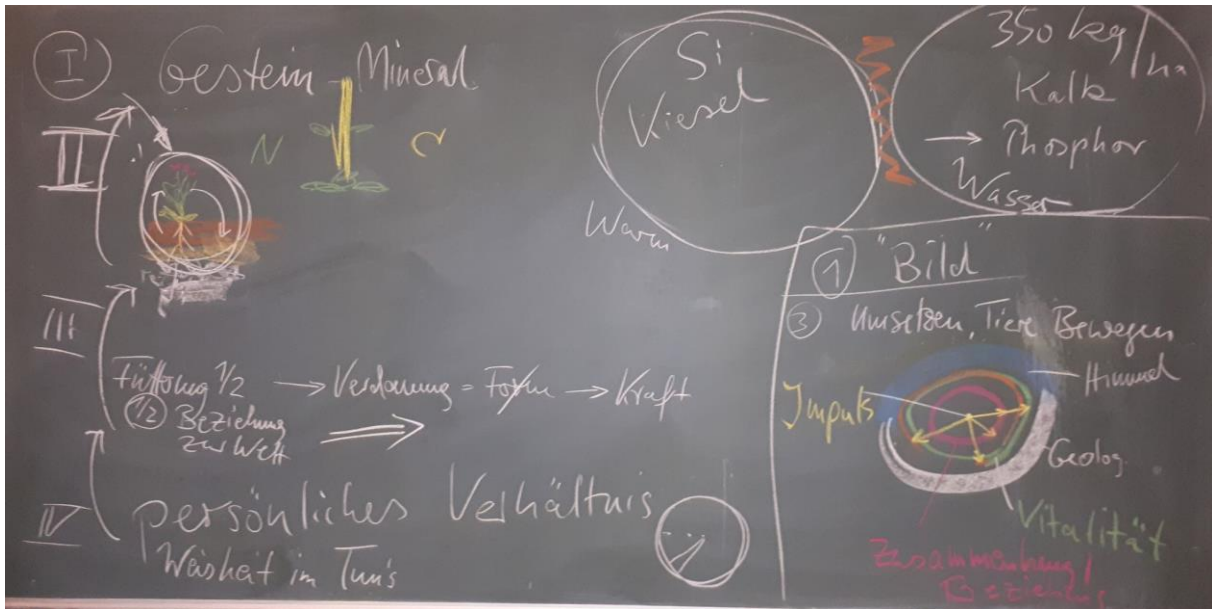 I Gestein - Mineral
II
N C
III
Fütterung 1/2 → Verdauung = Form → Kraft
1/2 Beziehung
zur Welt
IV persönliches Verhältnis
Weisheit im Tun's
Si
Kiesel
Warm
350 kg/ha
Kalk
→ Phosphor
Wasser
1 "Bild"
3 Umsetzen, Tiere Bewegen
Himmel
Impuls
Geolog.
Vitalität
Zusammenhang/
Beziehung